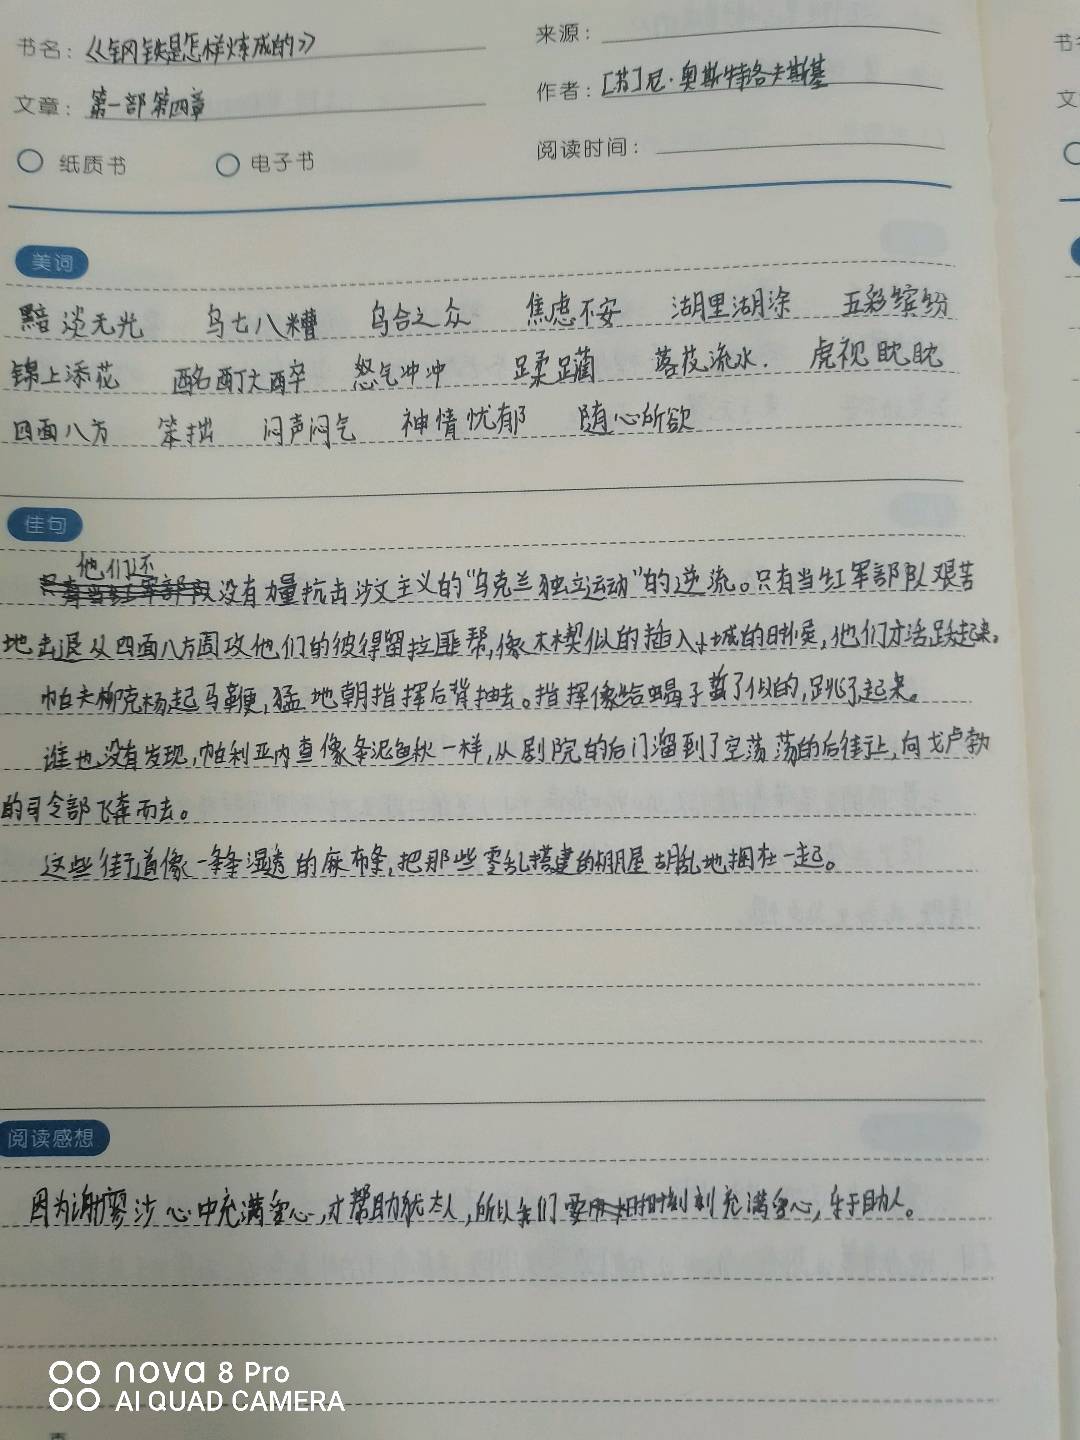 书名：《钢铁是怎样炼成的》
来源：
文章：第一部第四章
作者：[苏]尼·奥斯特洛夫斯基
纸质书 电子书
阅读时间：
美词
黯淡无光 乌七八糟 乌合之众 焦虑不安 湖里湖涂 五彩缤纷
锦上添花 酩酊大醉 怒气冲冲 蹂躏 落花流水. 虎视眈眈
四面八方 笨拙 闷声闷气 神情忧郁 随心所欲
佳句
他们还
没有力量抗击涉文主义的“乌克兰独立运动”的逆流。只有当红军部队艰苦
地击退从四面八方围攻他们的彼得留拉匪帮,像木楔似的插入小城的时候,他们才活跃起来。
帕夫柳克杨起马鞭,猛地朝指挥后背抽去。指挥像给蝎子蜇了似的,跳了起来。
谁也没有发现,帕利亚内查像条泥鳅一样,从剧院的后门溜到了空荡荡的后街上,向戈卢勃
的司令部飞奔而去。
这些街道像一条条湿透的麻布条,把那些零乱搭建的棚屋胡乱地捆在一起。
阅读感想
因为谢廖沙心中充满爱心,才帮助犹太人,所以我们要时时刻刻充满爱心,乐于助人。
nova 8 Pro
AI QUAD CAMERA